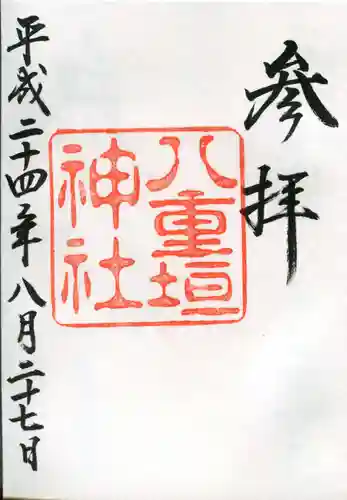 參拝
八重垣
神社
平成二十四年八月二十七日